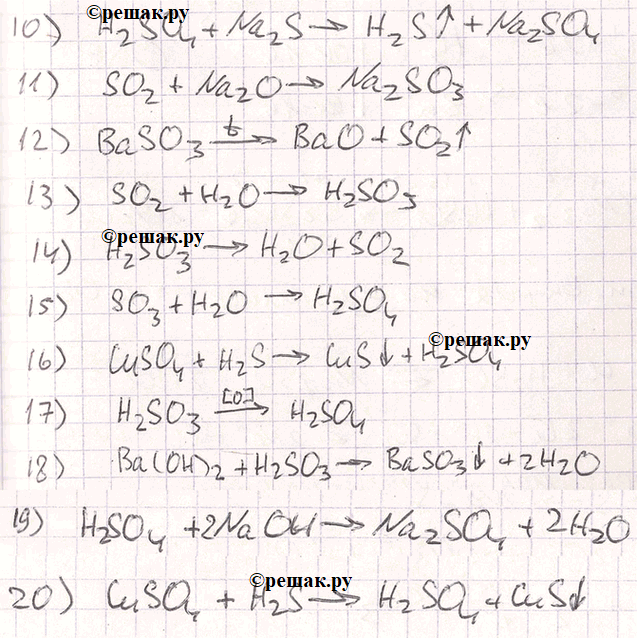 ©решак.ру
10) H₂SO₄ + Na₂S → H₂S↑ + Na₂SO₄
11) SO₂ + Na₂O → Na₂SO₃
12) BaSO₃ t→ BaO + SO₂↑
13) SO₂ + H₂O → H₂SO₃
©решак.ру
14) H₂SO₃ → H₂O + SO₂
15) SO₃ + H₂O → H₂SO₄
©решак.ру
16) CuSO₄ + H₂S → CuS↓ + H₂SO₄
17) H₂SO₃ [O]→ H₂SO₄
18) Ba(OH)₂ + H₂SO₃ → BaSO₃↓ + 2H₂O
19) H₂SO₄ + 2NaOH → Na₂SO₄ + 2H₂O
©решак.ру
20) CuSO₄ + H₂S → H₂SO₄ + CuS↓